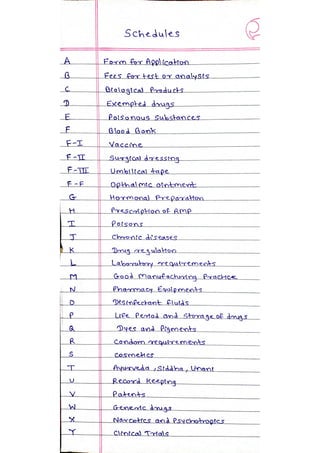 Schedules
A Form for Application
B Fees for test or analysis
C Biological Products
D Exempted drugs
E Poisonous Substances
F Blood Bank
F-I Vaccine
F-II Surgical dressing
F-III Umbilical tape
F-F Opthalmic ointment
G Hormonal Preparation
H Prescription of RMP
I Poisons
J Chronic diseases
K Drug regulation
L Laboratory requirements
M Good Manufacturing Practice
N Pharmacy Equipments
O Disinfectant fluids
P Life Period and Storage of drugs
Q Dyes and Pigments
R Condom requirements
S Cosmetics
T Ayurveda, Siddha, Unani
U Record Keeping
V Patents
W Generic drugs
X Narcotics and Psychotropics
Y Clinical Trials